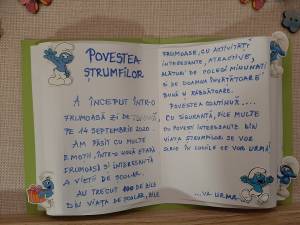 POVESTEA
ȘTRUMFILOR
A ÎNCEPUT ÎNTR-O
FRUMOASĂ ZI DE TOAMNĂ,
PE 14 SEPTEMBRIE 2020.
AM PĂȘIT CU MULTE
EMOȚII, ÎNTR-O NOUĂ ETAPĂ
FRUMOASĂ ȘI INTERESANTĂ
A VIEȚII DE ȘCOLAR.
AU TRECUT 100 DE ZILE
DIN VIAȚA DE ȘCOLAR, ZILE
FRUMOASE, CU ACTIVITĂȚI
INTERESANTE, ATRACTIVE,
ALĂTURI DE COLEGI MINUNAȚI
ȘI DE DOAMNA ÎNVĂȚĂTOARE
BUNĂ ȘI RĂBDĂTOARE.
POVESTEA CONTINUĂ....
CU SIGURANȚĂ, MULTE
POVEȘTI INTERESANTE DIN
VIAȚA ȘTRUMFILOR SE VOR
SCRIE ÎN LUNILE CE VOR URMA!
...VA URMA